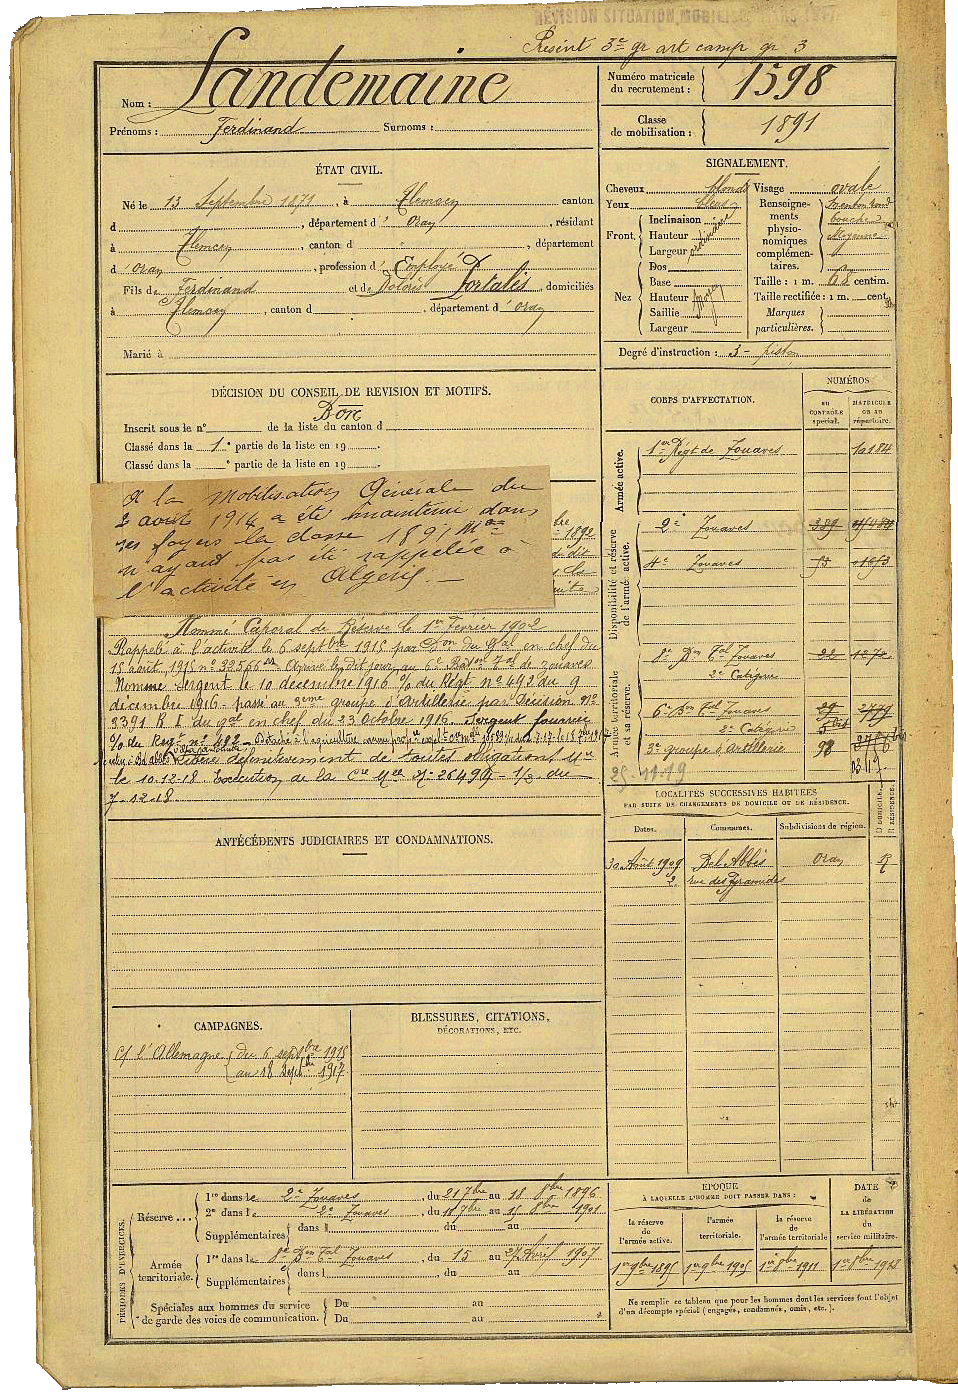 RÉVISION SITUATION
Résint 3e gr art camp gr 3
Nom : Landemaine
Prénoms : Ferdinand Surnoms :
Numéro matricule du recrutement : 1598
Classe de mobilisation : 1891
ÉTAT CIVIL.
Né le 13 Septembre 1871, à Tlemcen canton
d , département d' Oran, résidant
à Tlemcen, canton d " , département
d'Oran, profession d' Employé
Fils de Ferdinand et de Doloris Portalès domiciliés
à Tlemcen, canton d , département d' Oran
Marié à
SIGNALEMENT.
Cheveux blonds Visage ovale
Yeux bleus
Front. Inclinaison
Hauteur ordinaire
Largeur
Nez Dos
Base
Hauteur Moyen
Saillie
Largeur
Renseignements physionomiques complémentaires. Menton rond
bouche
Moyenne
Taille : 1 m. centim.
Taille rectifiée : 1 m. cent.
Marques particulières.
Degré d'instruction : 3 -
DÉCISION DU CONSEIL DE REVISION ET MOTIFS.
Bon
Inscrit sous le n° de la liste du canton d
Classé dans la 1e partie de la liste en 19
Classé dans la e partie de la liste en 19
A la Mobilisation Générale du
2 août 1914 a été maintenu dans
ses foyers la classe 1891 Mon
n'ayant pas été rappelée à
l'activité en Algérie. —
1892
Nommé Caporal de Réserve le 1er Février 1902
Rappelé à l'activité le 6 septbre 1915 par Don du Gal en chef du
15 août 1915 n° 32566 Arrivé le dit jour au 6e Baton Tal de zouaves
Nommé Sergent le 10 décembre 1916 % du Régt n° 492 du 9
décembre 1916 - passé au 3eme groupe d'artillerie par Décision n°
3391 R I du gal en chef du 23 Octobre 1916. Sergent fourrier
% du Reg n° 492 - Détaché à l'agriculture
Libéré définitivement de toutes obligations Mre
le 10-12-18. Exécution de la Cre Mlle N° 26499 - 1/2 du
7-12-18
CORPS D'AFFECTATION.
NUMÉROS
au contrôle spécial.
matricule ou au répertoire.
Armée active.
1er Régt de Zouaves 10184
Disponibilité et réserve de l'armée active.
2e Zouaves 389
4e Zouaves
Armée territoriale et sa réserve.
8e Bon Tal Zouaves 22 1272
2e Catégorie
6e Bon Tal Zouaves 29 2779
2e Catégorie
3e groupe d'Artillerie 98
25-11-19
LOCALITÉS SUCCESSIVES HABITÉES
PAR SUITE DE CHANGEMENTS DE DOMICILE OU DE RÉSIDENCE.
D DOMICILE.
R RÉSIDENCE.
Dates. Communes. Subdivisions de région.
30 Août 1909 Bel Abbès Oran R
2, rue des Pyramides
ANTÉCÉDENTS JUDICIAIRES ET CONDAMNATIONS.
CAMPAGNES.
C/ l'Allemagne du 6 septbre 1915
au 18 Septbre 1917
BLESSURES, CITATIONS,
DÉCORATIONS, ETC.
PÉRIODES D'EXERCICES.
Réserve ...
1re dans le 2e Zouaves, du 21 7bre au 18 8bre 1896
2e dans le 2e Zouaves, du 18 7bre au 15 8bre 1901
Supplémentaires dans l , du au
du au
Armée territoriale.
1re dans le 8e Bon Tal Zouaves, du 15 au 27 Avril 1907
Supplémentaires dans l du au
Spéciales aux hommes du service de garde des voies de communication. Du au
Du au
EPOQUE
À LAQUELLE L'HOMME DOIT PASSER DANS :
la réserve de l'armée active.
l'armée territoriale.
la réserve de l'armée territoriale
DATE de LA LIBÉRATION du service militaire.
1er 9bre 1895 1er 9bre 1905 1er 8bre 1911 1er 8bre 1918
Ne remplir ce tableau que pour les hommes dont les services font l'objet
d'un décompte spécial (engagés, condamnés, omis, etc.).